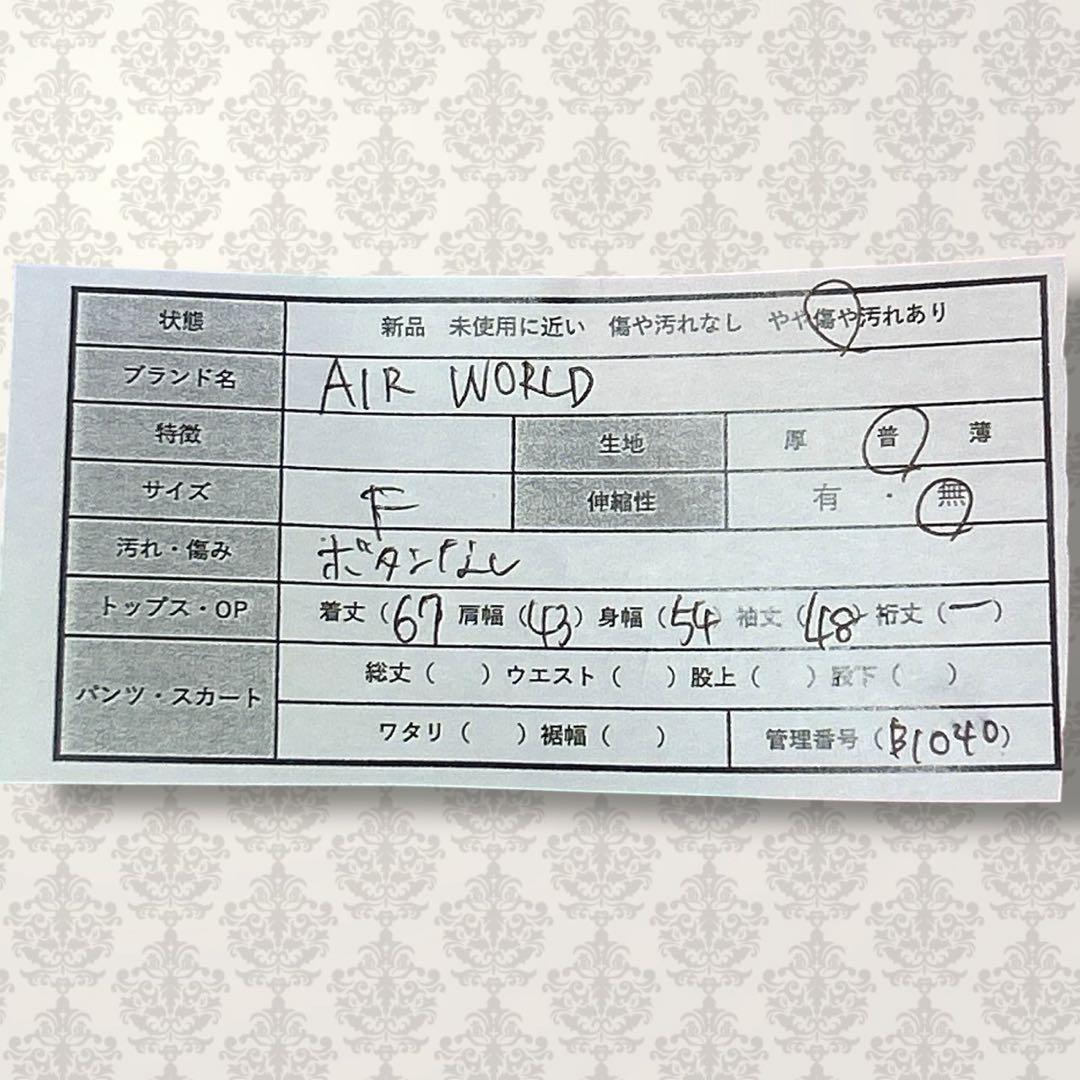 状態 新品 未使用に近い 傷や汚れなし やや傷や汚れあり
ブランド名 AIR WORLD
特徴 生地 厚 普 薄
サイズ F 伸縮性 有 ・ 無
汚れ・傷み ボタンなし
トップス・OP 着丈(67) 肩幅(43) 身幅(54) 袖丈(48) 裄丈(ー)
パンツ・スカート 総丈( ) ウエスト( ) 股上( )股下( )
ワタリ( ) 裾幅( ) 管理番号(B1040)